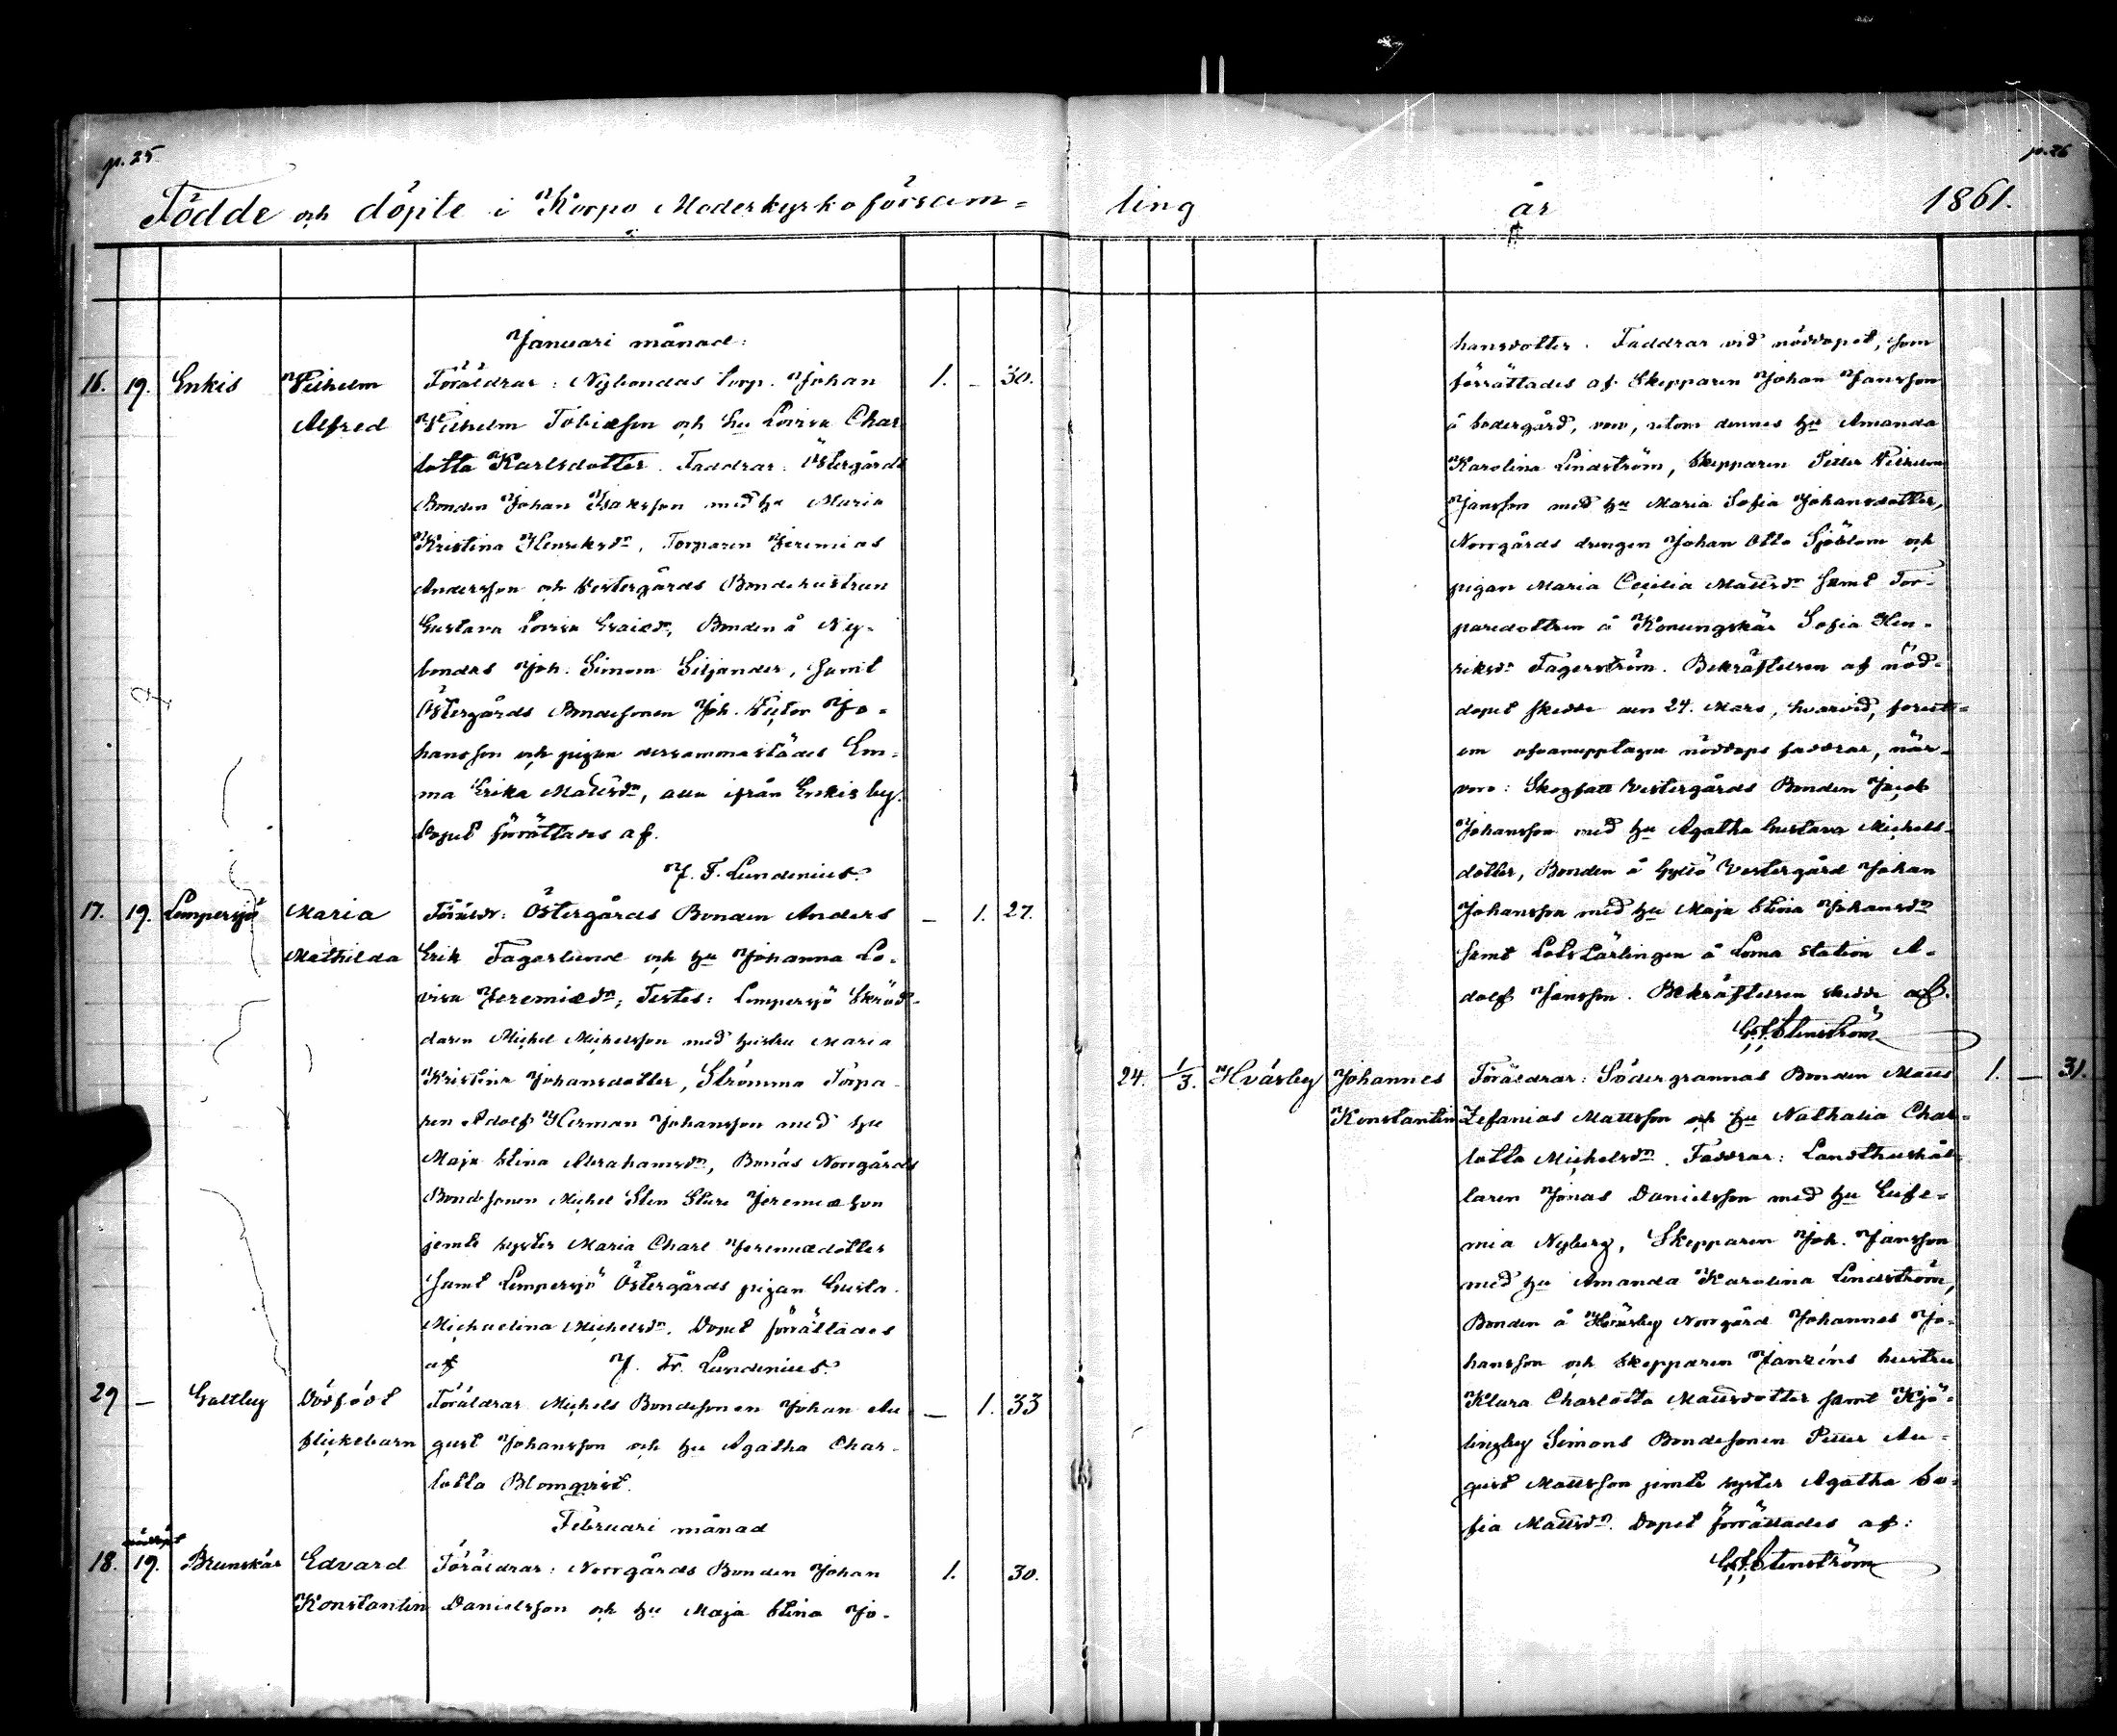 p. 25
Födde och döpte i Korpo Moderkyrkoförsam=
Januari månad:
16. 19. Enkis Vilhelm Föräldrar: Nybondas torp. Johan 1. - 30.
Alfred Vilhelm Tobiæson och hu Lovisa Char
lotta Karlsdotter. Faddrar: Östergårds
Bonden Johan Isaksson med hu Maria
Kristina Henriksdr, Torparen Jeremias
Andersson och Vestergårds Bondehustrun
Gustava Lovisa Esaiædr, Bonden å Ny-
bondas Joh. Simon Siljander, samt
Östergårds Bondesonen Joh. Victor Jo-
hansson och pigan dersammastädes Em-
ma Erika Matsdr, alla ifrån Enkis by.
Dopet förrättades af.
J. F. Lundenius.
17. 19. Lempersjö Maria Föräldr: Östergårds Bonden Anders - 1. 27.
Mathilda Erik Fagerlund och hu Johanna Lo-
visa Jeremiædr; Testes: Lempersjö Skräd-
daren Michel Michelsson med hustru Maria
Kristina Johansdotter, Strömma Torpa-
ren Adolf Herman Johansson med hu
Maja Stina Abrahamsdr, Bonäs Norrgårds
Bondesonen Michel Sten Sture Jeremiæson
jemte syster Maria Charl Jeremiædotter
samt Lempersjö Östergårds pigan Gusta-
Michaelina Michelsdr. Dopet förrättades
af J. Fr. Lundenius.
29 - Galtby Dödfödt Föräldrar Michels Bondesonen Johan Au - 1. 33
flickebarn gust Johansson och hu Agatha Char-
lotta Blomqvist.
Februari månad
nöddöpt
18. 19. Brunskär Edvard Föräldrar: Norrgårds Bonden Johan 1. 30.
Konstantin Danielsson och hu Maja Stina Jo-
p. 26
ling år 1861.
hansdotter. Faddrar vid nöddopet, som
förrättades af Skepparen Johan Jansson
å Södergård, voro, utom dennes hu Amanda
Karolina Lindström, Skepparen Petter Vilhelm
Jansson med hu Maria Sofia Johansdotter,
Norrgårds drengen Johan Otto Sjöblom och
pigan Maria Cecilia Mattsdr samt Tor-
paredottren å Konungskär Sofia Hen-
riksdr Fagerström. Bekräftelsen af nöd-
dopet skedde den 24. Mars, hvarvid, förut-
om ofvanupptagne nöddops faddrar, när-
voro: Skogfall Vestergårds Bonden Jacob
Johansson med hu Agatha Gustava Michels-
dotter, Bonden å Gyltö Vestergård Johan
Johansson med hu Maja Stina Johansdr
samt Lots Lärlingen å Lorna station A-
dolf Jansson. Bekräftelsen skedde af.
G. F. Stenström
24. 1/3. Hväsby Johannes Föräldrar: Södergrannas Bonden Matts 1. - 31.
Konstantin Zefanias Mattsson och hu Nathalia Char-
lotta Michelsdr. Faddrar: Landthushål-
laren Jonas Danielsson med hu Eufe-
mia Nyberg, Skepparen Joh. Jansson
med hu Amanda Karolina Lindström,
Bonden å Hväsby Norrgård Johannes Jo-
hansson och skepparen Janzéns hustru
Klara Charlotta Mattsdotter samt Kjö-
lingby Simons Bondesonen Petter Au-
gust Mattsson jemte syster Agatha So-
fia Mattsdr. Dopet förrättades af:
G. F. Stenström